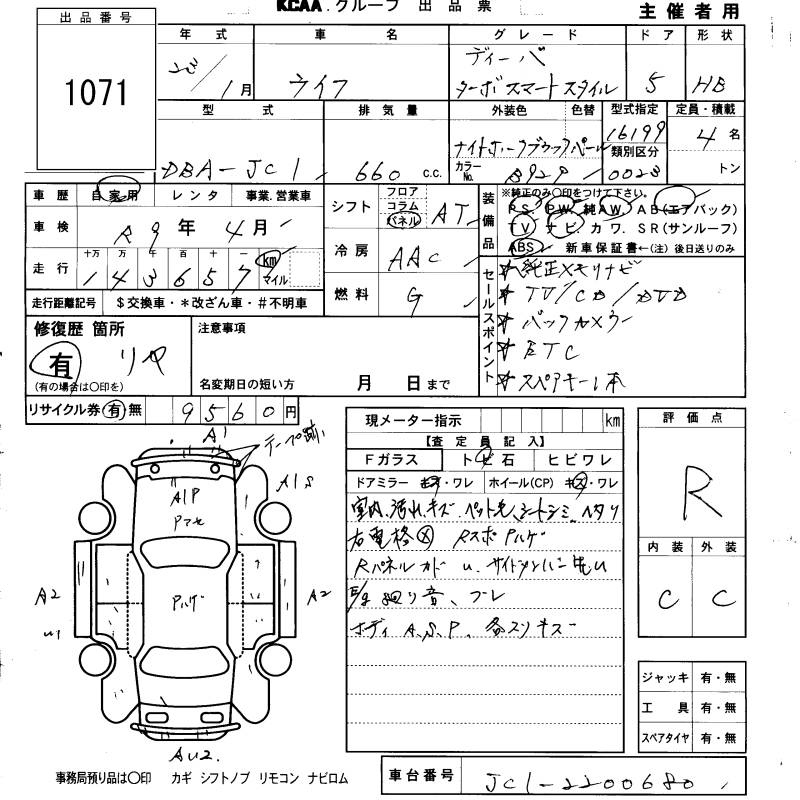 KCAA.グループ 出品票
主催者用
出品番号
1071
年式 車名 グレード ドア 形状
1月 ライフ ディーバ ターボスマートスタイル 5 HB
型式 排気量 外装色 色替 型式指定 定員・積載
DBA-JC1 660 c.c. ナイトホークブラックパール 16199 4名
カラーNo. B92P 類別区分 0023 トン
車歴 自家用 レンタ 事業.営業車
車検 R9年4月
走行 十万 万 千 百 十 一 km マイル
143657
走行距離記号 $交換車・*改ざん車・#不明車
シフト フロア コラム パネル AT
冷房 AAC
燃料 G
装備品 ※純正のみ○印をつけて下さい。
PS. PW. 純AW. AB(エアバック)
TV ナビ. カワ. SR(サンルーフ)
ABS 新車保証書←(注)後日送りのみ
セールスポイント
純正メモリナビ
TV/CD/DVD
バックカメラー
ETC
スペアキー1本
修復歴 箇所
有 リヤ
(有の場合は○印を)
注意事項
名変期日の短い方 月 日まで
リサイクル券 有 無 9560円
現メーター指示 km
【査定員記入】
Fガラス トビ石 ヒビワレ
ドアミラー キズ・ワレ ホイール(CP) キズ・ワレ
室内.汚れ.キズ.ペット毛.シートシミ.ヘタリ
右電格 Rスポ Pハゲ
Rパネル カド u.サイドメンバー
廻り音、ブレ
ボディ A.S.P. 各スリキズ
評価点
R
内装 外装
C C
ジャッキ 有・無
工具 有・無
スペアタイヤ 有・無
A1 テープ跡
A1P
A1S
A2 Pハゲ A2
U1
AU2.
事務局預り品は○印 カギ シフトノブ リモコン ナビロム
車台番号 JC1-2200680